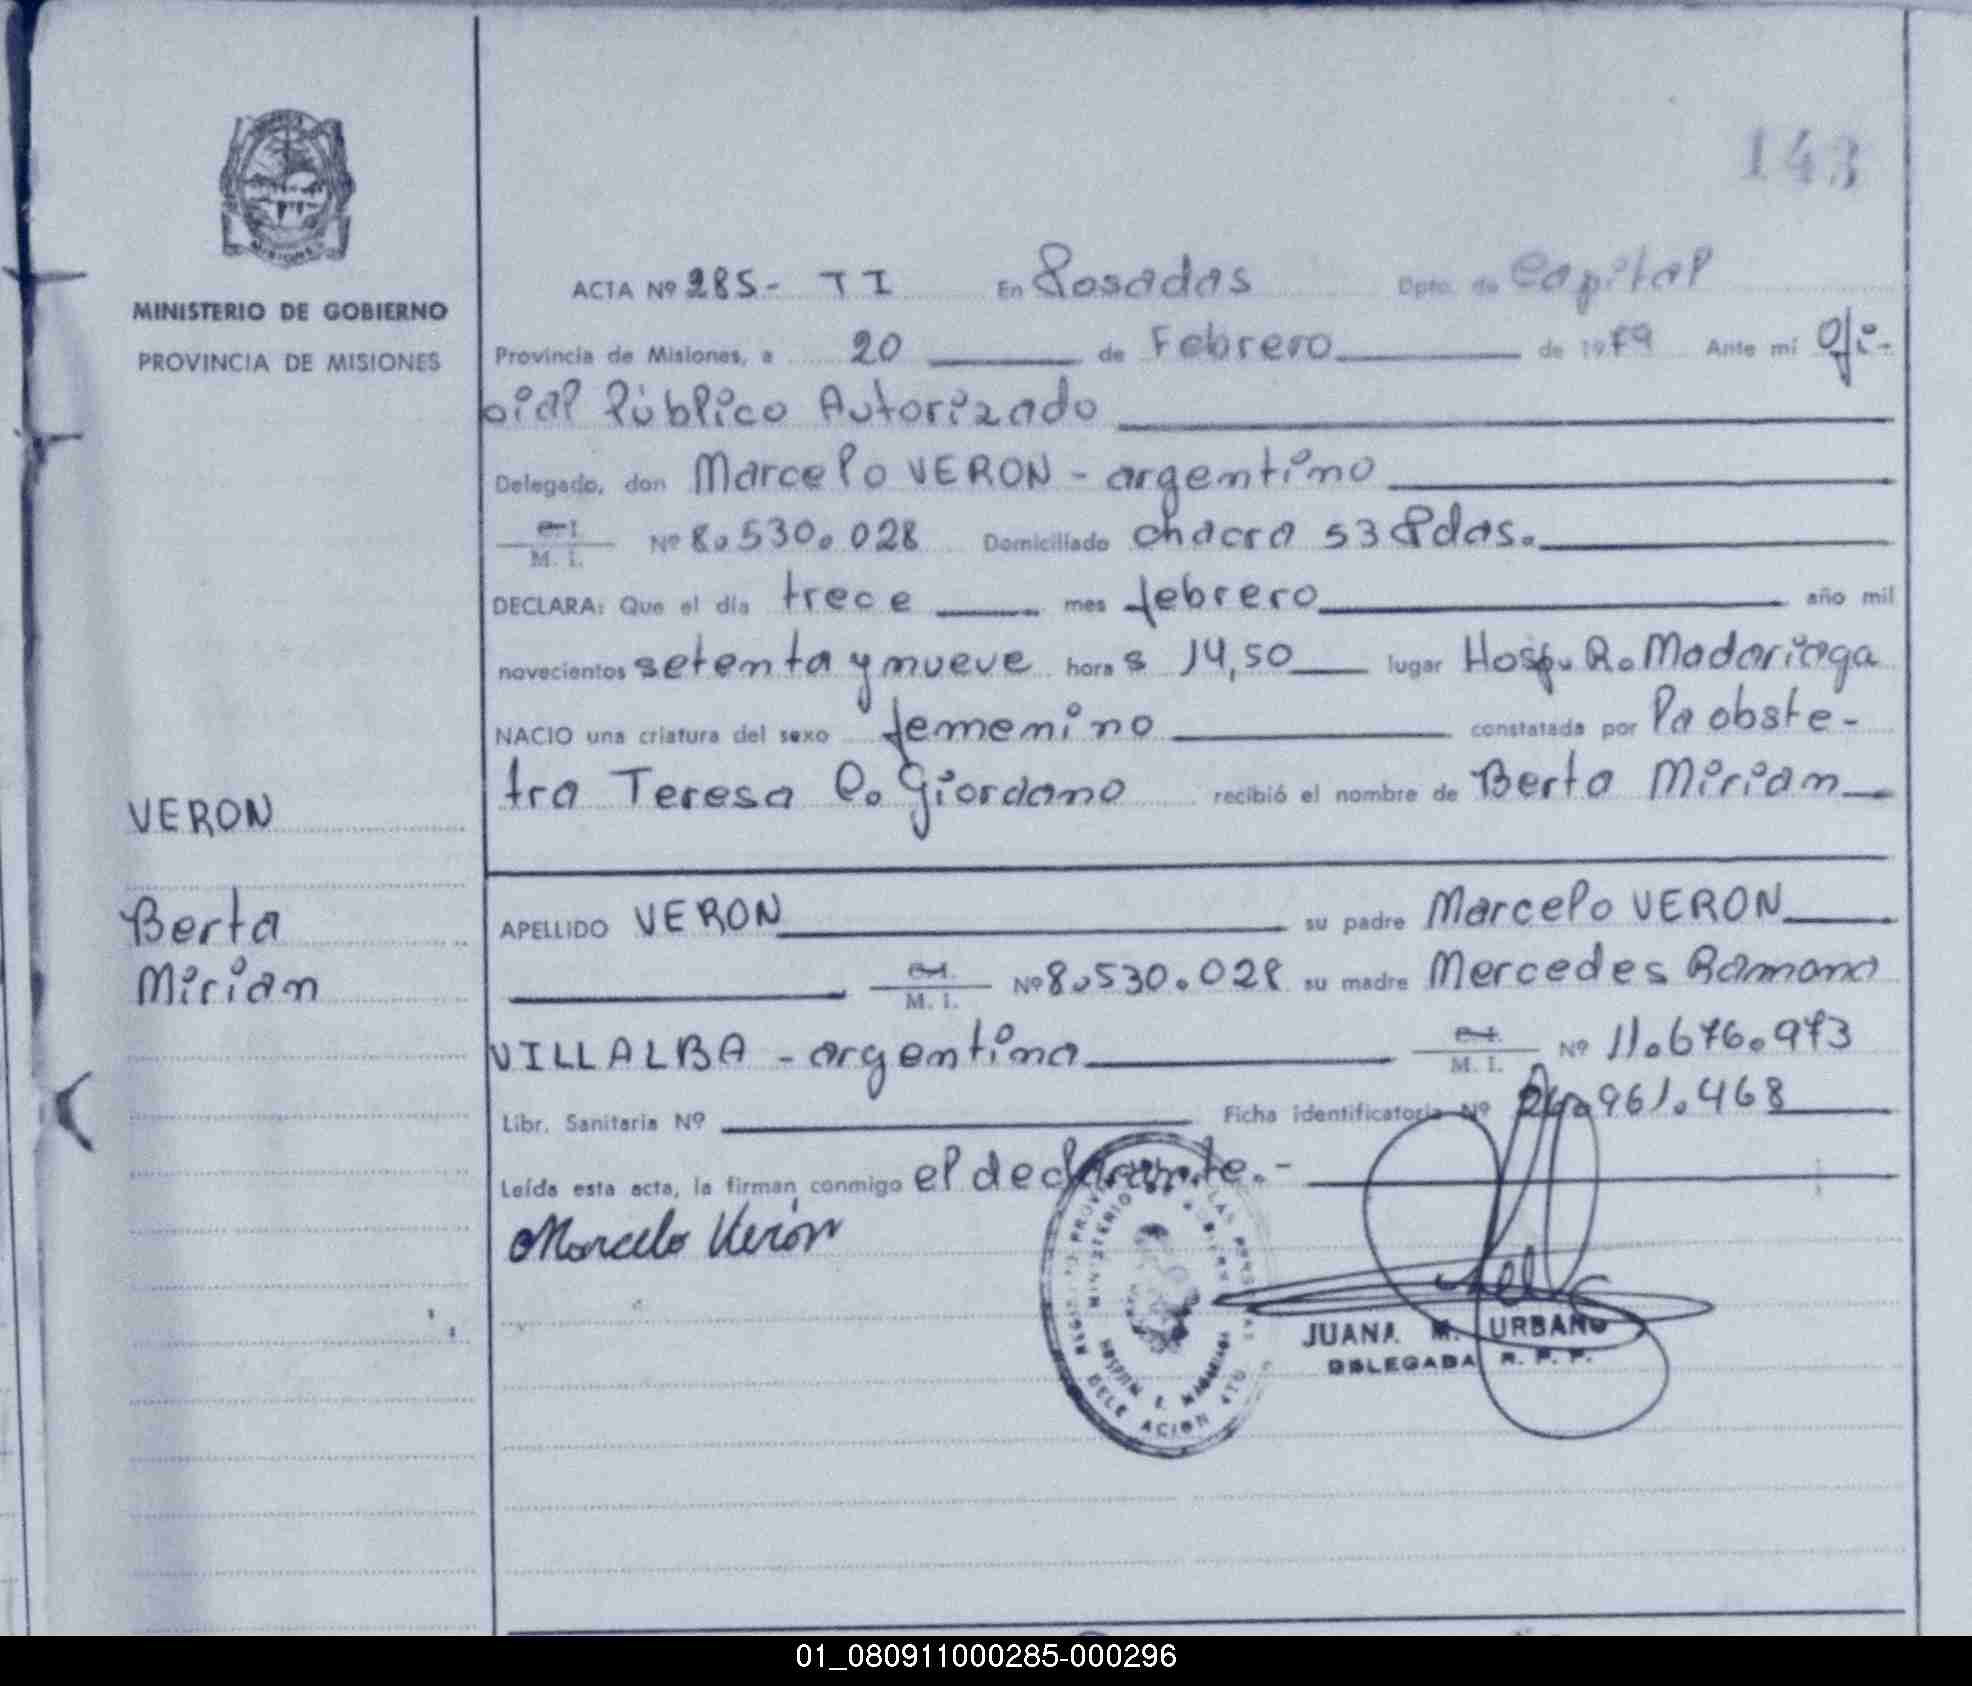 143
MINISTERIO DE GOBIERNO
PROVINCIA DE MISIONES
ACTA Nº 285- TI En Posadas Dpto. de Capital
Provincia de Misiones, a 20 de Febrero de 1979 Ante mí Ofi-
cial Público Autorizado
Delegado, don Marcelo VERON - argentino
M. I. Nº 8.530.028 Domiciliado chacra 53 Pdas.
DECLARA: Que el día trece mes febrero año mil
novecientos setenta y nueve hora s 14,50 lugar Hosp. R. Madariaga
NACIO una criatura del sexo femenino constatada por la obste-
tra Teresa C. Giordano recibió el nombre de Berta Mirian
VERON
Berta
Mirian
APELLIDO VERON su padre Marcelo VERON
M. I. Nº 8.530.028 su madre Mercedes Ramona
VILLALBA - argentina M. I. Nº 11.676.973
Libr. Sanitaria Nº Ficha identificatoria Nº 26.961.468
Leída esta acta, la firman conmigo el declarante.-
Marcelo Verón
JUANA M. URBANO
DELEGADA R. P. P.
01_080911000285-000296